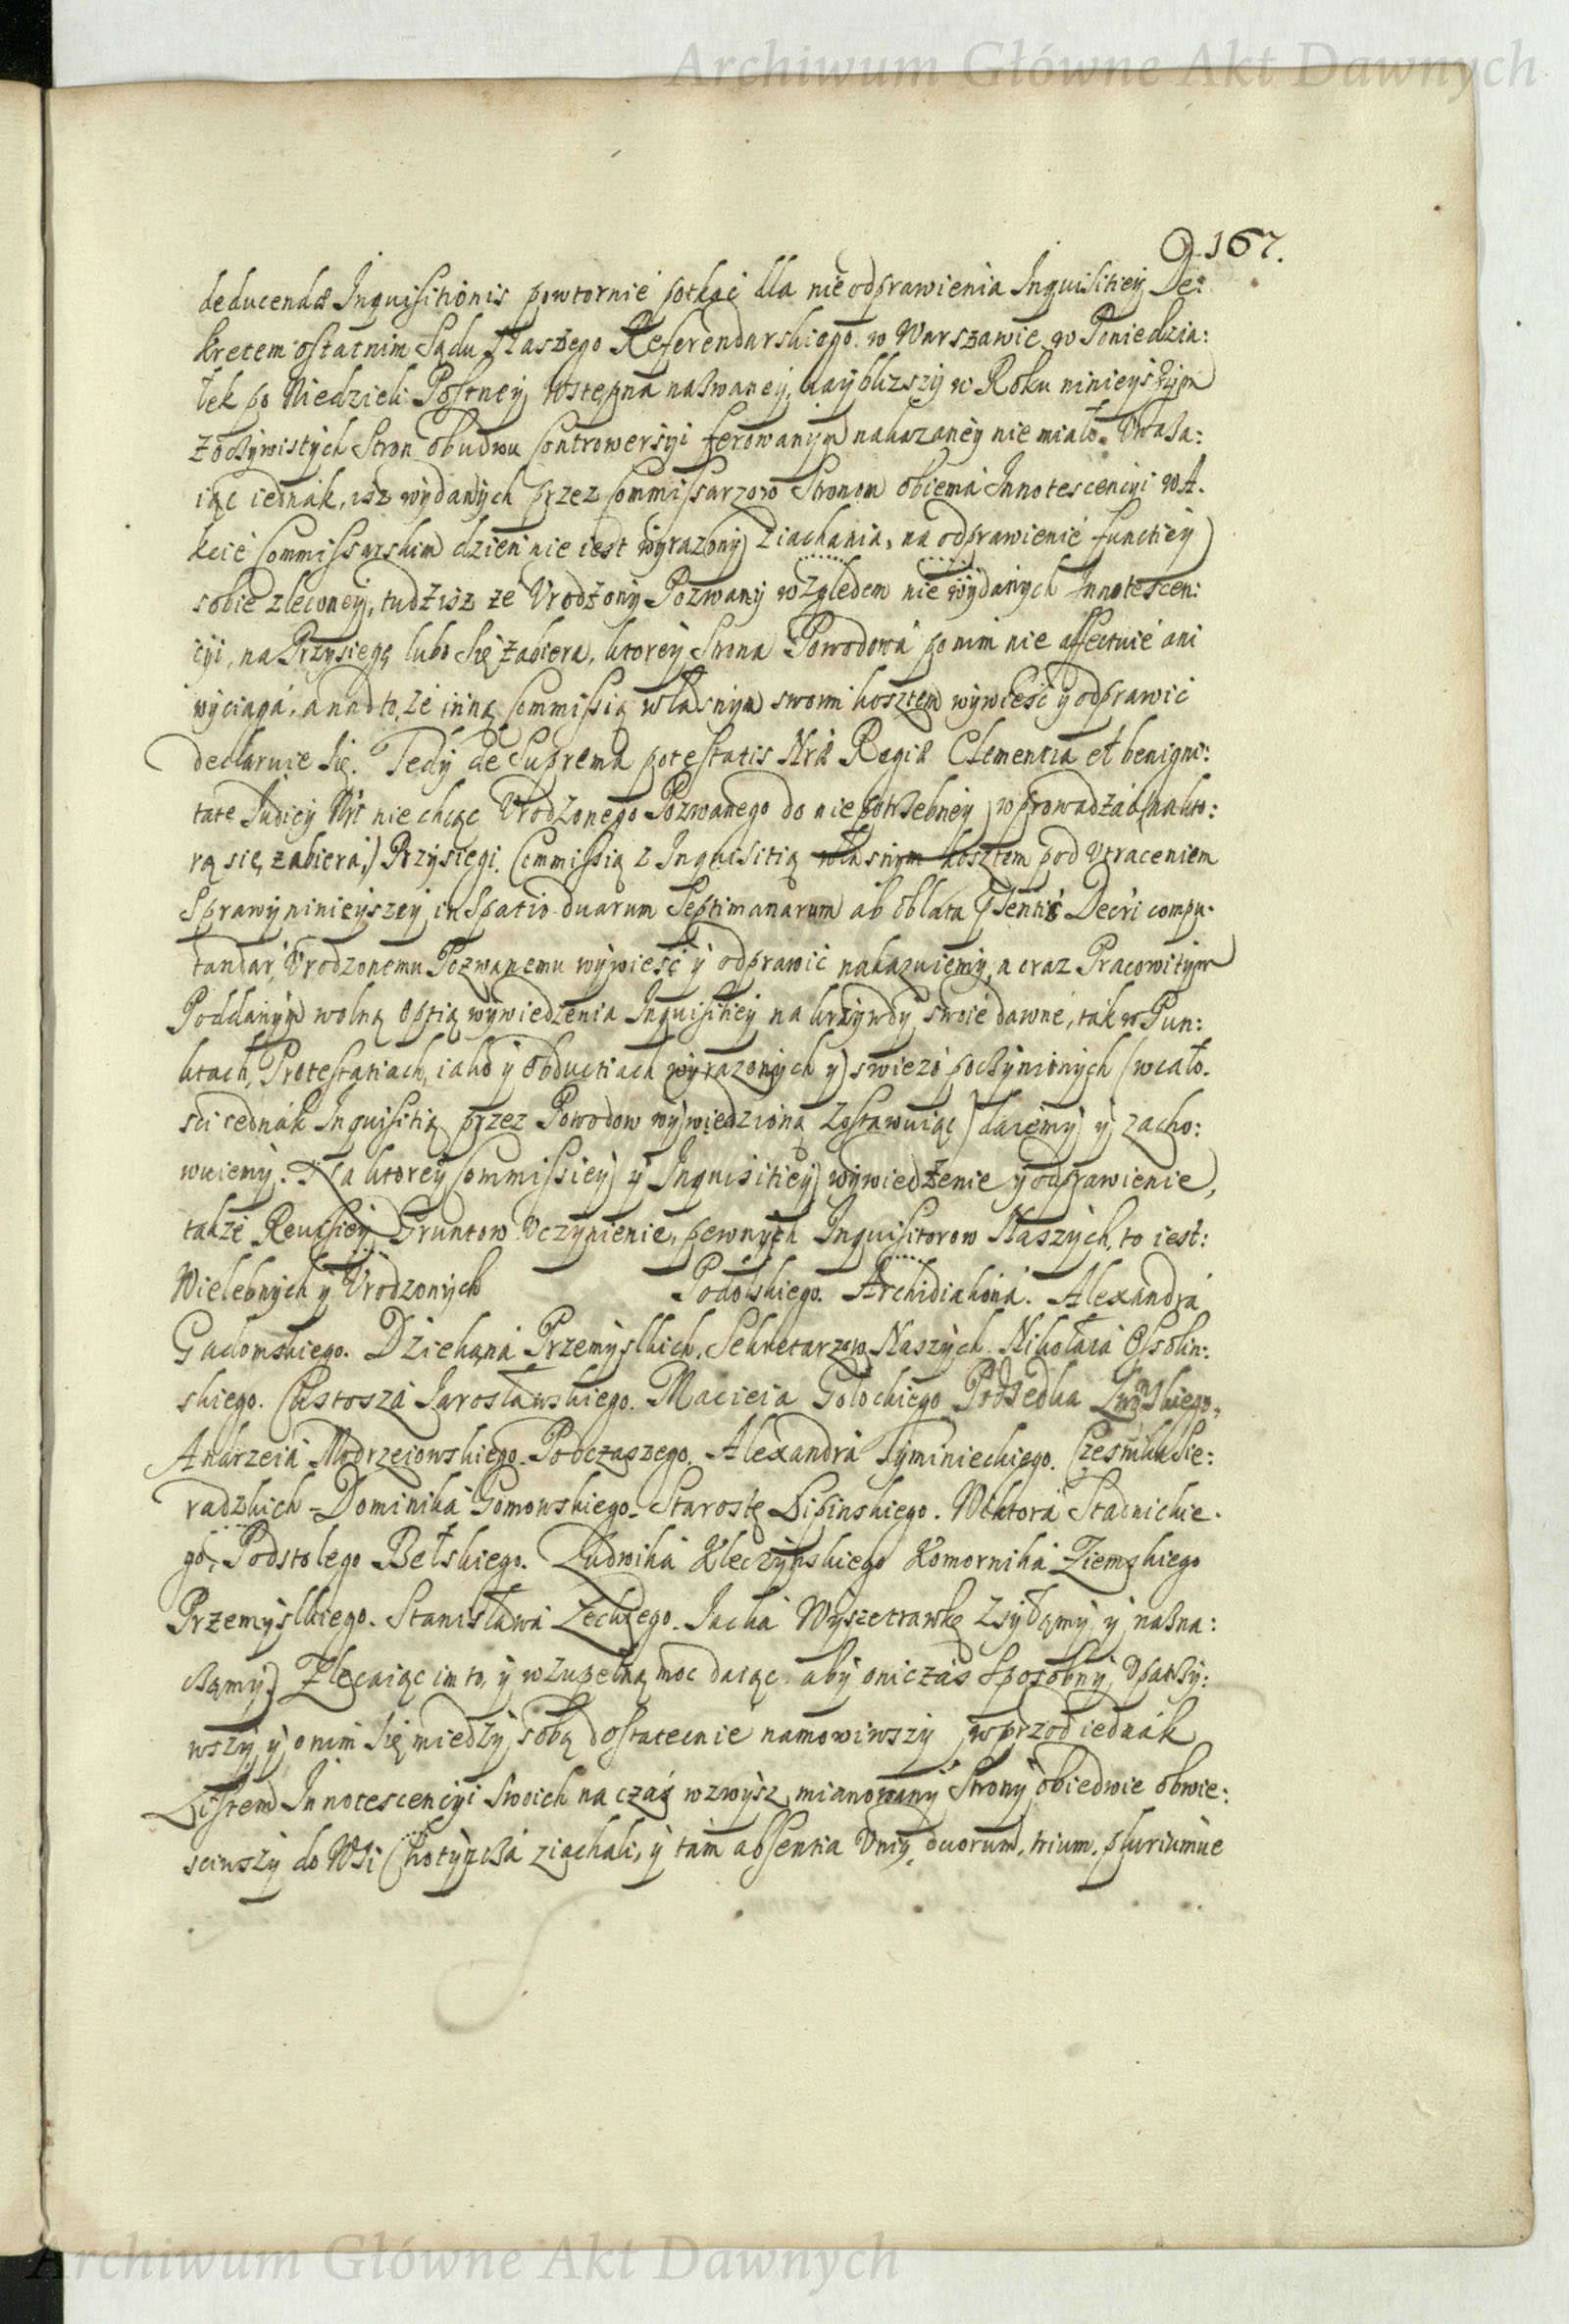 Archiwum Główne Akt Dawnych
167.
deducendæ Inquisitionis powtornie potkać dla nieodprawienia Inquisitiey De:
kretem ostatnim Sądu Naszego Referendarskiego w Warszawie w Poniedzia:
łek po Niedzieli Postney wstępna nazwaney, naybliższy w Roku ninieyszym
z oczywistych Stron obudwu Controwersyi ferowanym nakazaney nie miało. Uwaza:
iąc iednak, isz wydanych przez Commissarzow Stronom obiema Innotescencyi w A.
kcie Commissarskim dzien nie iest wyrazony ziachania, na odprawienie functiey
sobie zleconey, tudzisz ze Urodzony Pozwany względem nie wydanych Innotescen:
cyi, na Przysięgę lubo się zabiera, ktorey Strona Powodowa po nim nie affectuie ani
wyciąga, a nadto, ze inną Commissią własnym swoim kosztem wywieść y odprawić
declaruie się. Tedy de Suprema potestatis Nræ Regiæ Clementia et benigni:
tate Judicy Nri nie chcąc Urodzonego Pozwanego do niepotrzebney wprowadzać (na kto:
rą się zabiera,) Przysięgi. Commissią z Inquisitią własnym kosztem pod utraceniem
Sprawy ninieyszey in Spatio duarum Septimanarum ab oblata pñtis Decri compu.
tandar, Urodzonemu Pozwanemu wywieść y odprawić nakazuiemy, a oraz Pracowitym
Poddanym wolną optią wywiedzenia Inquisitiey na krzywdy swoie dawne, tak w Pun:
ktach, Protestatiach, iako y obductiach wyrazonych y swiezo poczynionych (w cało.
sci iednak Inquisitią przez Powodow wywiedzioną zostawuiąc) daiemy y zacho:
wuiemy. Na ktorey Commissiey y Inquisitiey wywiedzenie y odprawienie,
takze Reuisiey Gruntow uczynienie, pewnych Inquisitorow Naszych, to iest:
Wielebnych y Urodzonych Podolskiego. Archidiakona. Alexandra
Gadomskiego. Dziekana Przemyslkich, Sekretarzow Naszych. Nikołaia Ossolin:
skiego. Custosza Jarosławskiego. Macieia Gołockiego Podsędka Lwowskiego,
Andrzeia Modrzeiowskiego. Podczaszego. Alexandra Tyminieckiego. Czesnika Sie:
radzkich Dominika Gomowskiego Starostę Lipinskiego. Wiktora Stadnickie.
go, Podstolego Bełskiego. Ludwika Kleczynskiego Komornika Ziemskiego
Przemyslkiego. Stanisława Zechzego. Jacka Wyszetrawkę zsyłamy y nazna:
czamy. Zlecaiąc im to, y w zupełną moc daiąc. aby oni czas sposobny upatrzy:
wszy y o nim się miedzy sobą dostatecnie namowiwszy, wprzod iednak
Listem Innotescencyi swoich na czas wzwysz mianowany Strony obiedwie obwie:
sciwszy do Wsi Chotyńca ziachali, y tam absentia Uniq duorum, trium, pluriumue
Archiwum Główne Akt Dawnych